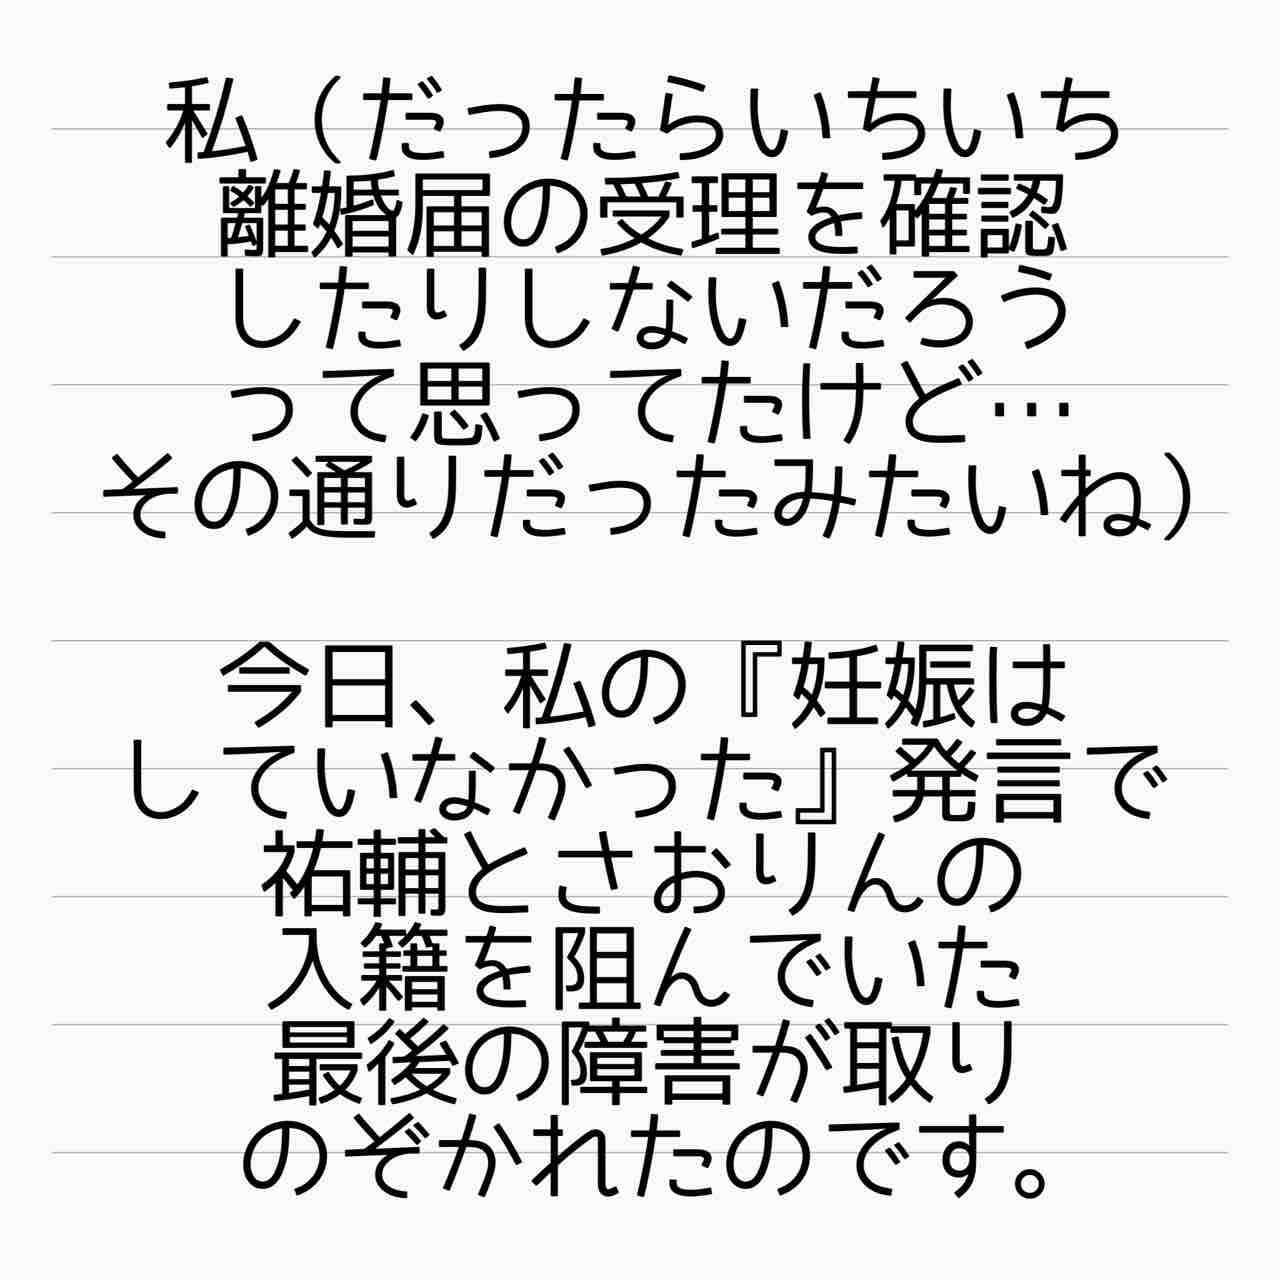 私（だったらいちいち
離婚届の受理を確認
したりしないだろう
って思ってたけど…
その通りだったみたいね）
今日、私の『妊娠は
していなかった』発言で
祐輔とさおりんの
入籍を阻んでいた
最後の障害が取り
のぞかれたのです。